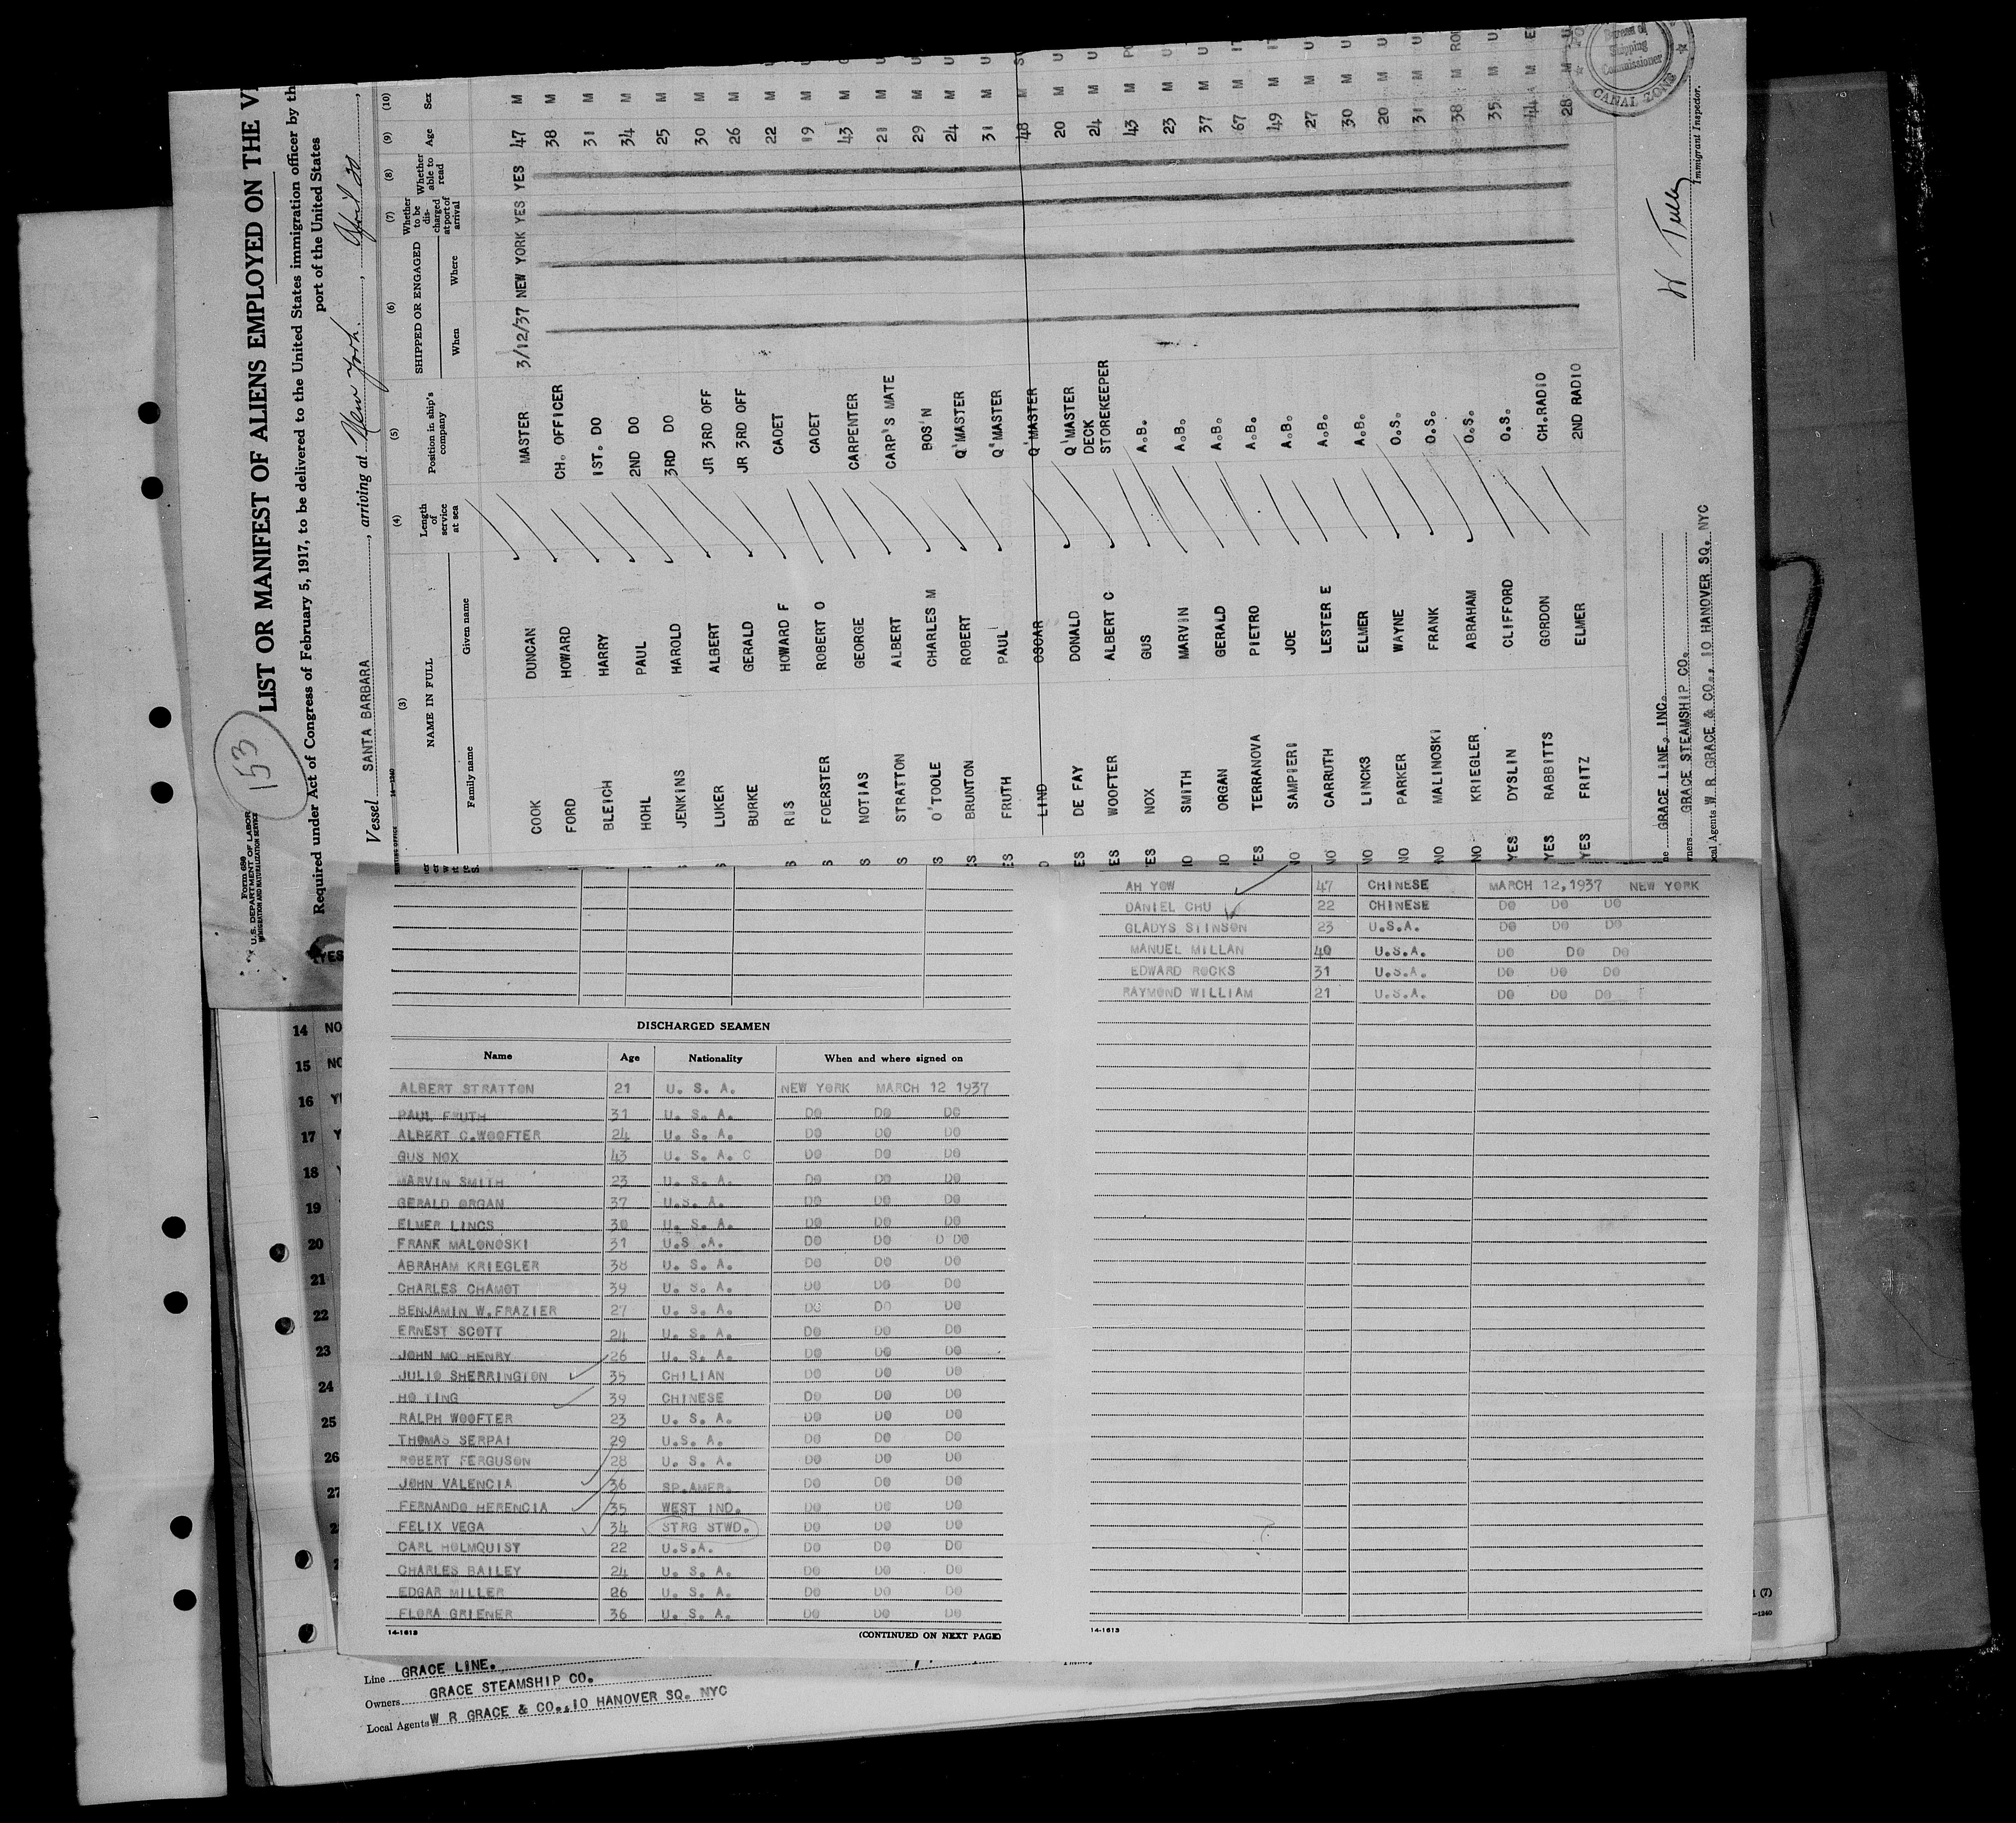 153
Form 680
U.S. DEPARTMENT OF LABOR
IMMIGRATION AND NATURALIZATION SERVICE
LIST OR MANIFEST OF ALIENS EMPLOYED ON THE
Required under Act of Congress of February 5, 1917, to be delivered to the United States immigration officer by th
port of the United States
Vessel SANTA BARBARA, arriving at New York, April 20,
(3) (4) (5) (6) (7) (8) (9) (10)
NAME IN FULL Length of service at sea Position in ship's company SHIPPED OR ENGAGED Whether to be discharged at port of arrival Whether able to read Age Sex
Family name Given name When Where
COOK DUNCAN MASTER 3/12/37 NEW YORK YES YES 47 M
FORD HOWARD CH. OFFICER 38 M
BLEICH HARRY 1ST. DO 31 M
HOHL PAUL 2ND DO 34 M
JENKINS HAROLD 3RD DO 25 M
LUKER ALBERT JR 3RD OFF 30 M
BURKE GERALD JR 3RD OFF 26 M
RIS HOWARD F CADET 22 M
FOERSTER ROBERT O CADET 19 M
NOTIAS GEORGE CARPENTER 43 M
STRATTON ALBERT CARP'S MATE 21 M
O'TOOLE CHARLES M BOS'N 29 M
BRUNTON ROBERT Q'MASTER 24 M
FRUTH PAUL Q'MASTER 31 M
LIND OSCAR Q'MASTER 48 M
DE FAY DONALD Q'MASTER 20 M
WOOFTER ALBERT C DECK STOREKEEPER 24 M
YES NOX GUS A.B. 43 M
NO SMITH MARVIN A.B. 23 M
NO ORGAN GERALD A.B. 37 M
YES TERRANOVA PIETRO A.B. 67 M
NO SAMPIERI JOE A.B. 49 M
NO CARRUTH LESTER E A.B. 27 M
NO LINCKS ELMER A.B. 30 M
NO PARKER WAYNE O.S. 20 M
NO MALINOSKI FRANK O.S. 31 M
NO KRIEGLER ABRAHAM O.S. 38 M
YES DYSLIN CLIFFORD O.S. 35 M
YES RABBITTS GORDON CH.RADIO 44 M
YES FRITZ ELMER 2ND RADIO 28 M
GRACE LINE, INC.
GRACE STEAMSHIP CO.
Local Agents W R GRACE & CO., 10 HANOVER SQ. NYC
W Tully
Immigrant Inspector.
Bureau of Shipping Commissioner
CANAL ZONE
YES
14 NO
15 NO
16
17
18
19
20
21
22
23
24
25
26
27
DISCHARGED SEAMEN
Name Age Nationality When and where signed on
ALBERT STRATTON 21 U. S. A. NEW YORK MARCH 12 1937
PAUL FRUTH 31 U. S. A. DO DO DO
ALBERT C.WOOFTER 24 U. S. A. DO DO DO
GUS NOX 43 U. S. A. C DO DO DO
MARVIN SMITH 23 U. S. A. DO DO DO
GERALD ORGAN 37 U.S. A. DO DO DO
ELMER LINCS 30 U. S. A. DO DO DO
FRANK MALONOSKI 31 U.S .A. DO DO D DO
ABRAHAM KRIEGLER 38 U. S. A. DO DO DO
CHARLES CHAMOT 39 U. S. A. DO DO DO
BENJAMIN W.FRAZIER 27 U. S. A. DO DO DO
ERNEST SCOTT 24 U. S. A. DO DO DO
JOHN MC HENRY 26 U. S. A. DO DO DO
JULIO SHERRINGTON 35 CHILIAN DO DO DO
HO TING 39 CHINESE DO DO DO
RALPH WOOFTER 23 U. S. A. DO DO DO
THOMAS SERPAI 29 U.S. A. DO DO DO
ROBERT FERGUSON 28 U. S. A. DO DO DO
JOHN VALENCIA 36 SP.AMER. DO DO DO
FERNANDO HERENCIA 35 WEST IND. DO DO DO
FELIX VEGA 34 STRG STWD. DO DO DO
CARL HOLMQUIST 22 U.S.A. DO DO DO
CHARLES BAILEY 24 U. S. A. DO DO DO
EDGAR MILLER 26 U. S. A. DO DO DO
FLORA GRIENER 36 U. S. A. DO DO DO
14-1613 (CONTINUED ON NEXT PAGE)
AH YOW 47 CHINESE MARCH 12,1937 NEW YORK
DANIEL CHU 22 CHINESE DO DO DO
GLADYS STINSON 23 U.S.A. DO DO DO
MANUEL MILLAN 40 U.S.A. DO DO DO
EDWARD ROCKS 31 U.S.A. DO DO DO
RAYMOND WILLIAM 21 U.S.A. DO DO DO
14-1613
Line GRACE LINE.
Owners GRACE STEAMSHIP CO.
Local Agents W R GRACE & CO.,10 HANOVER SQ. NYC